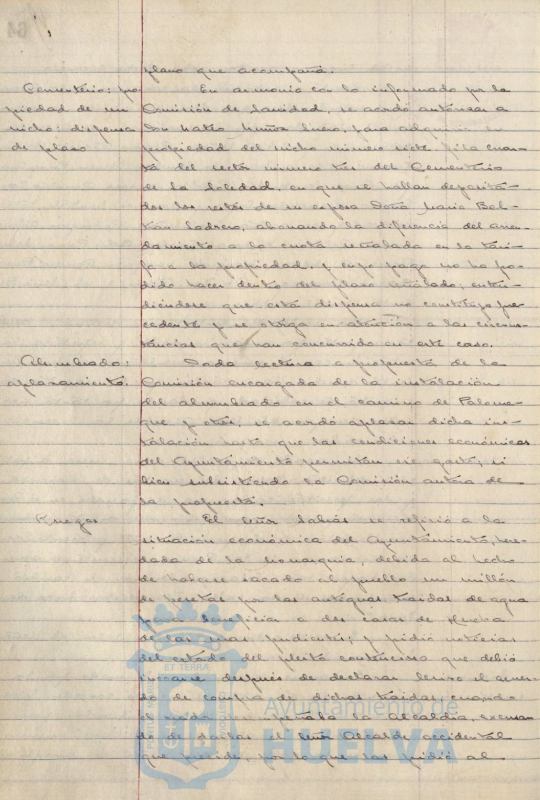 plano que acompaña.
Cementerio: pro
piedad de un
nicho: dispensa
de plazo
En armonía con lo informado por la
Comisión de Sanidad, se acordó autorizar a
Don Mateo Muñoz para adquirir en
propiedad del nicho número siete fila cuar-
ta del sector número tres del Cementerio
de la Soledad, en que se hallan deposita-
dos los restos de su esposa Doña María Bel-
trán Ladrero, abonando la diferencia del arren-
damiento a la cuota señalada en la tari-
fa a la propiedad, y cuyo pago no ha po-
dido hacer dentro del plazo señalado; enten-
diéndose que esta dispensa no constituye pre-
cedente y se otorga en atención a las circuns-
tancias que han concurrido en este caso.
Alumbrado:
aplazamiento.
Dada lectura a propuesta de la
Comisión encargada de la instalación
del alumbrado en el camino de Palome-
que y otros, se acordó aplazar dicha ins-
talación hasta que las condiciones económicas
del Ayuntamiento permitan ese gasto, si
bien subsistiendo la Comisión autora de
la propuesta.
Ruegos
El Señor Sabrás se refirió a la
situación económica del Ayuntamiento, here-
dada de la Monarquía, debida al hecho
de haberse sacado al pueblo un millón
de pesetas por las antiguas traídas de agua
para beneficiar a dos casas de Huelva
de las mas pudientes; y pidió noticias
del estado del pleito contencioso que debió
incoarse después de declarar lesivo el acuer-
do de compra de dichas traídas cuando
el desempeñaba la Alcaldía,
do de el Señor Alcalde accidental
que preside, por lo que las pidió al
Ayuntamiento de
HUELVA